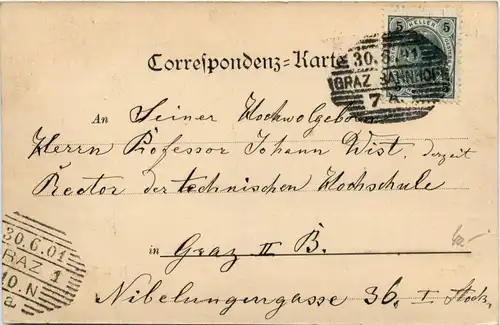 5 HELLER 5
30.6.01
GRAZ BAHNHOF
7 A.
Correspondenz=Karte
An Seiner Hochwolgebor
Herrn Professor Johann Wist, derzeit
Rector der technischen Hochschule
in Graz II B.
Nibelungengasse 36. I Stock,
30.6.01
GRAZ 1
10.N
a